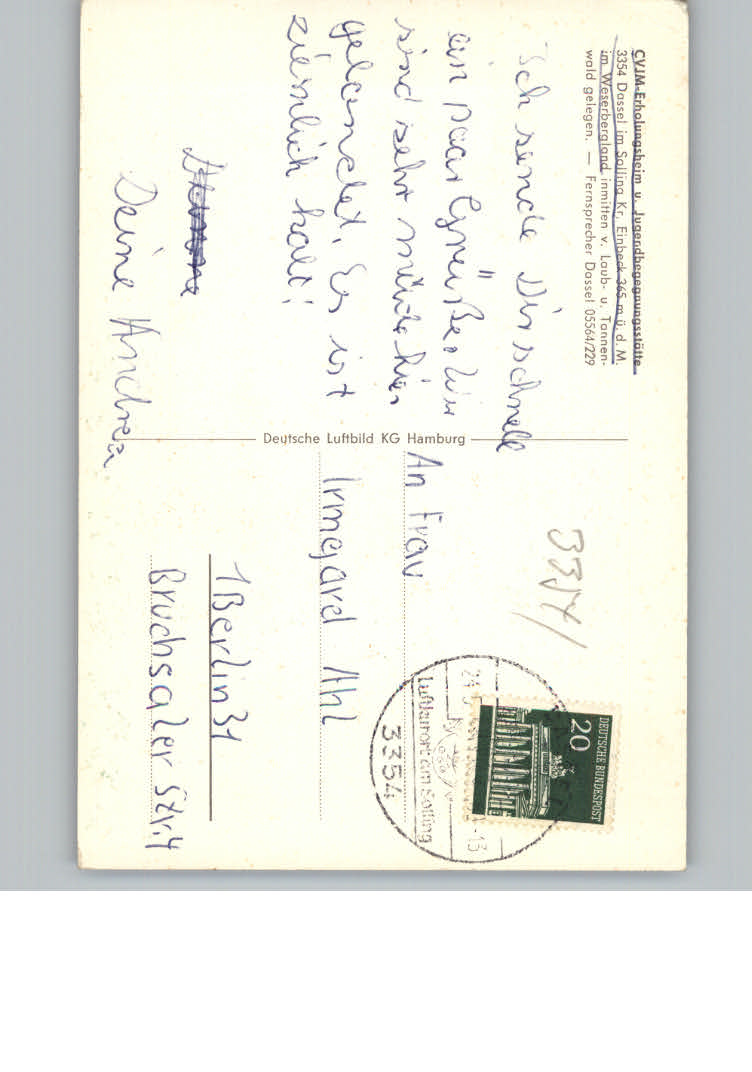 CVJM-Erholungsheim u. Jugendbegegnungsstätte
3354 Dassel im Solling Kr. Einbeck 365 m ü. d. M.
im Weserbergland inmitten v. Laub- u. Tannen-
wald gelegen. — Fernsprecher Dassel 05564/229
Ich sende Dir schnell
ein paar Grüße. Wir
sind sehr müde hier
gelandet. Es ist
ziemlich kalt!
Deine Andrea
Deutsche Luftbild KG Hamburg
3354/
DEUTSCHE BUNDESPOST
20
Luftkurort am Solling
3354
An Frau
Irmgard Ahl
1 Berlin 31
Bruchsaler Str. 4